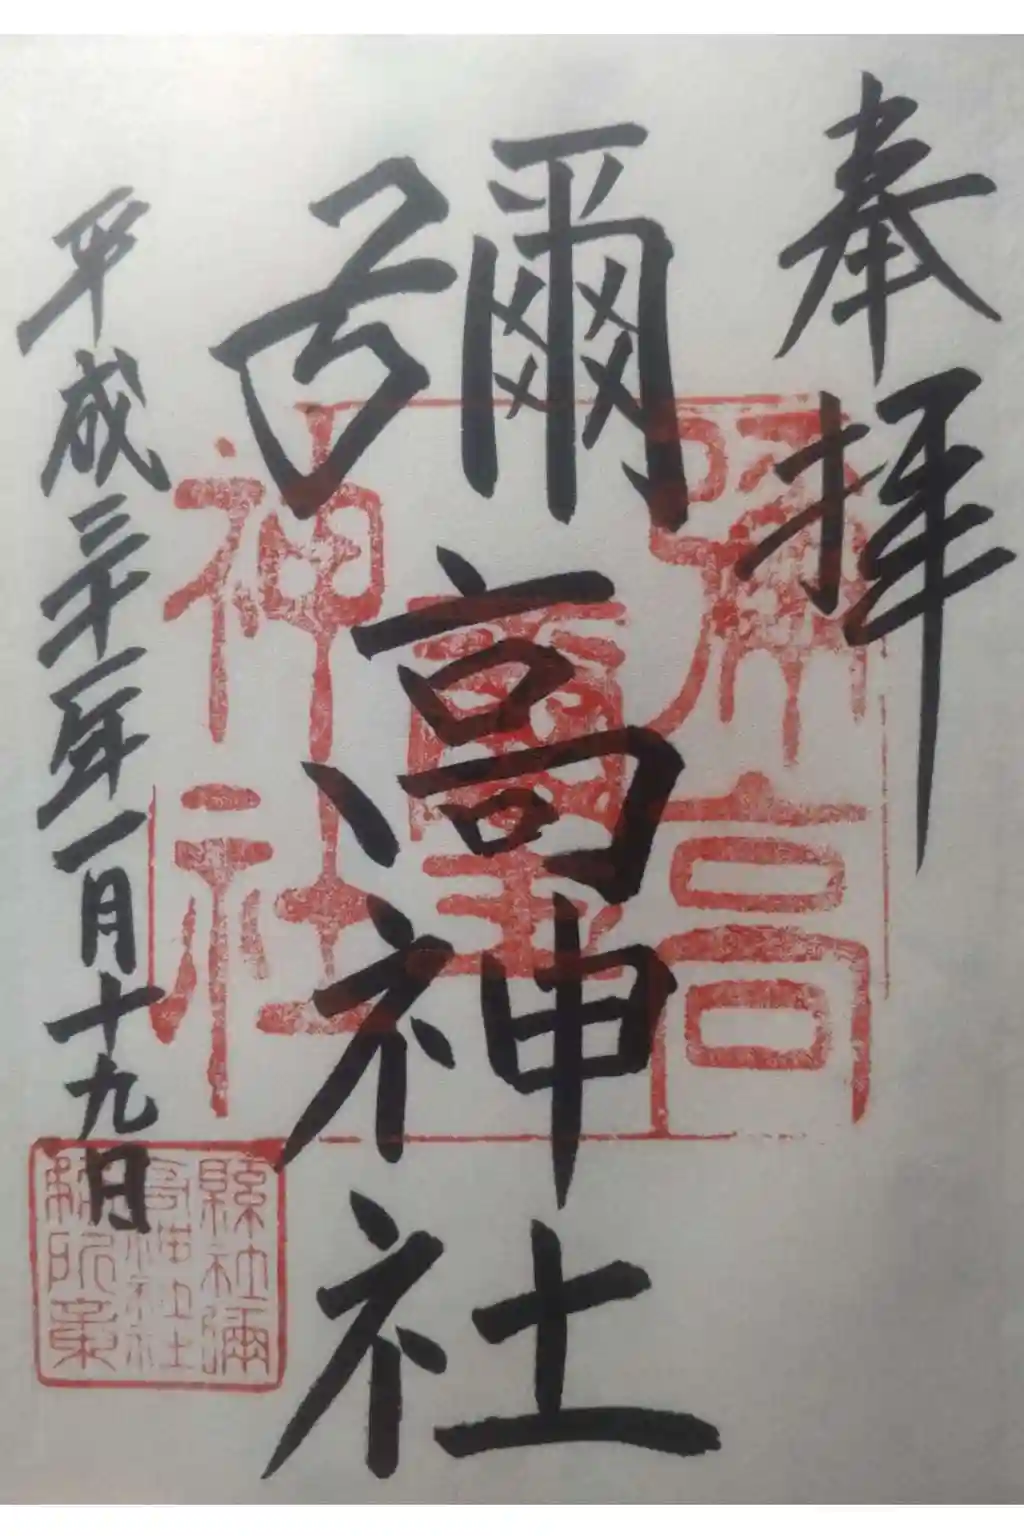 奉拝
彌高神社
平成三十一年一月十九日
彌高
璽
神社
縣社彌
高神社社
務所